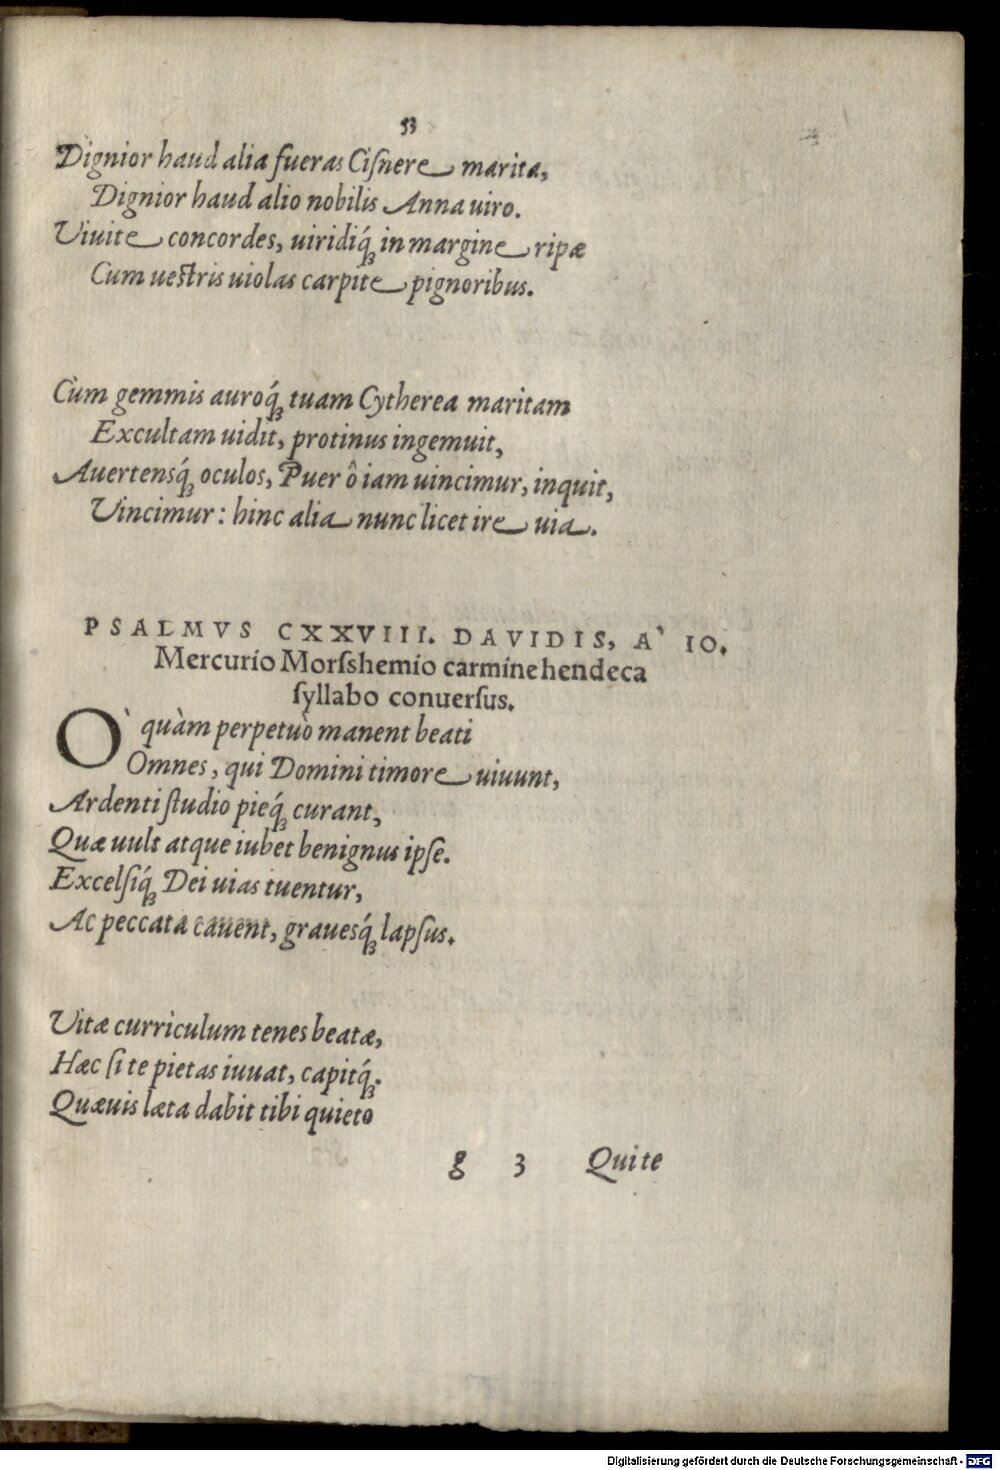 53
Dignior haud alia fueras Ciſnere marita,
Dignior haud alio nobilis Anna uiro.
Viuite concordes, uiridiq́ꝫ in margine ripæ
Cum ueſtris uiolas carpite pignoribus.
Cùm gemmis auroq́ꝫ tuam Cytherea maritam
Excultam uidit, protinus ingemuit,
Auertensq́ꝫ oculos, Puer ô iam uincimur, inquit,
Vincimur: hinc alia nunc licet ire uia.
PSALMVS CXXVIII. DAVIDIS, A` IO.
Mercurio Morſshemio carmine hendeca
ſyllabo conuerſus.
O` quàm perpetuò manent beati
Omnes, qui Domini timore uiuunt,
Ardenti ſtudio pieq́ꝫ curant,
Quæ uult atque iubet benignus ipſe.
Excelſiq́ꝫ Dei uias tuentur,
Ac peccata cauent, grauesq́ꝫ lapſus.
Vitæ curriculum tenes beatæ,
Hæc ſi te pietas iuuat, capitq́ꝫ.
Quæuis læta dabit tibi quieto
g 3 Quite
Digitalisierung gefördert durch die Deutsche Forschungsgemeinschaft - DFG